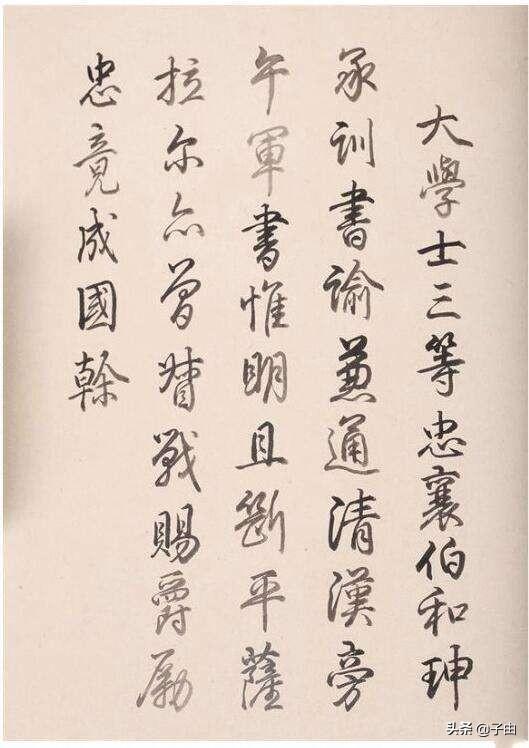 大學士三等忠襄伯和珅
承訓書諭兼通清漢旁
午軍書惟明且斷平薩
拉尔亦曾督戰賜爵勵
忠竟成國榦
头条 @子由